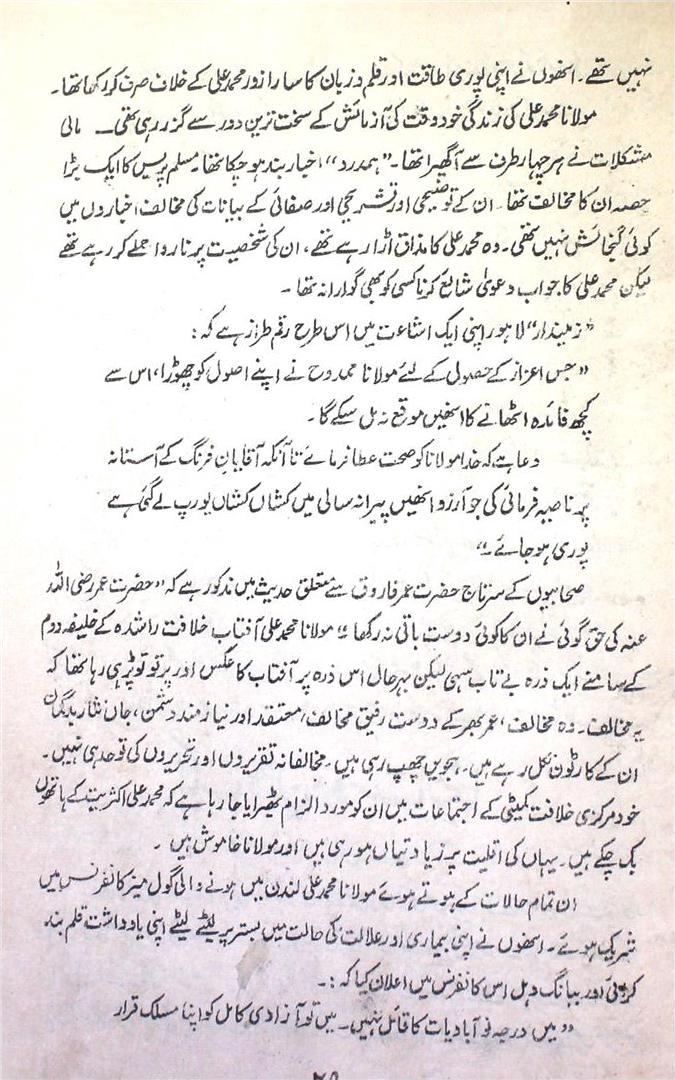 نہیں تھے۔ انھوں نے اپنی پوری طاقت اور قلم و زبان کا سارا زور محمد علی کے خلاف صرف کر رکھا تھا۔
مولانا محمد علی کی زندگی خود وقت کی آزمائش کے سخت ترین دور سے گزر رہی تھی۔ مالی
مشکلات نے ہر چہار طرف سے آگھیرا تھا۔ "ہمدرد" اخبار بند ہو چکا تھا۔ مسلم پریس کا ایک بڑا
حصہ ان کا مخالف تھا۔ ان کے توضیحی اور تشریحی اور صفائی کے بیانات کی مخالف اخباروں میں
کوئی گنجائش نہیں تھی۔ وہ محمد علی کا مذاق اڑا رہے تھے، ان کی شخصیت پر ناروا حملے کر رہے تھے
لیکن محمد علی کا جواب دعویٰ شایع کرنا کسی کو بھی گوارا نہ تھا۔
"زمیندار" لاہور اپنی ایک اشاعت میں اس طرح رقم طراز ہے کہ:
"جس اعزاز کے حصول کے لئے مولانا ممدوح نے اپنے اصول کو چھوڑا، اس سے
کچھ فائدہ اٹھانے کا انھیں موقع نہ مل سکے گا۔
دعا ہے کہ خدا مولانا کو صحت عطا فرمائے تا آنکہ آقایانِ فرنگ کے آستانہ
پر ناصیہ فرمائی کی جو آرزو انھیں پیرانہ سالی میں کشاں کشاں یورپ لے گئی ہے
پوری ہو جائے۔"
صحابیوں کے سرتاج حضرت عمر فاروق سے متعلق حدیث میں مذکور ہے کہ "حضرت عمر رضی اللہ
عنہ کی حق گوئی نے ان کا کوئی دوست باقی نہ رکھا۔" مولانا محمد علی آفتاب خلافت راشدہ کے خلیفہ دوم
کے سامنے ایک ذرہ بے تاب سہی لیکن بہرحال اس ذرہ پر آفتاب کا عکس اور پرتو تو پڑ ہی رہا تھا کہ
یہ مخالف۔ وہ مخالف، عمر بھر کے دوست رفیق مخالف، معتقد اور نیاز مند دشمن، جاں نثار بدگمان
ان کے کارٹون نکل رہے ہیں۔ ہجویں چھپ رہی ہیں۔ مخالفانہ تقریروں اور تحریروں کی تو حد ہی نہیں۔
خود مرکزی خلافت کمیٹی کے اجتماعات میں ان کو مورد الزام ٹھیرایا جا رہا ہے کہ محمد علی اکثریت کے ہاتھوں
بک چکے ہیں۔ یہاں کی اقلیت پر زیادتیاں ہو رہی ہیں اور مولانا خاموش ہیں۔
ان تمام حالات کے ہوتے ہوئے مولانا محمد علی لندن میں ہونے والی گول میز کانفرنس میں
شریک ہوئے۔ انھوں نے اپنی بیماری اور علالت کی حالت میں بستر پر لیٹے لیٹے اپنی یادداشت قلم بند
کرائی اور ببانگ دہل اس کانفرنس میں اعلان کیا کہ:۔
"میں درجہ نوآبادیات کا قائل نہیں۔ میں تو آزادی کامل کو اپنا مسلک قرار